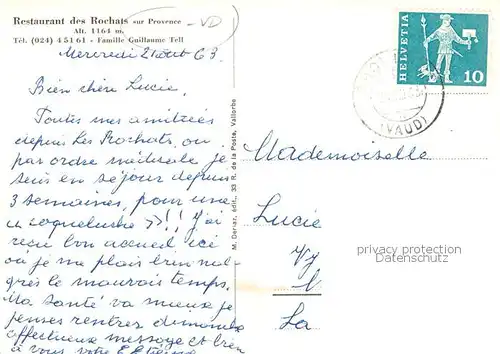 Restaurant des Rochats sur Provence - VD
Alt. 1164 m.
Tél. (024) 4 51 61 - Famille Guillaume Tell
Mercredi 21 août 63
Bien chère Lucie,
Toutes mes amitiées
depuis Les Rochats, où
par ordre médicale je
suis en séjour depuis
3 semaines, pour une
coqueluche !! J'ai
reçu bon accueil ici
où je me plais bien mal-
grès le mauvais temps.
Ma santé va mieux je
penses rentrer dimanche
affectueux message et bien
à vous votre E. Etienne
M. Deriaz, édit., 33 R. de la Poste, Vallorbe
HELVETIA
10
(VAUD)
Mademoiselle
Lucie
privacy protection
Datenschutz
La